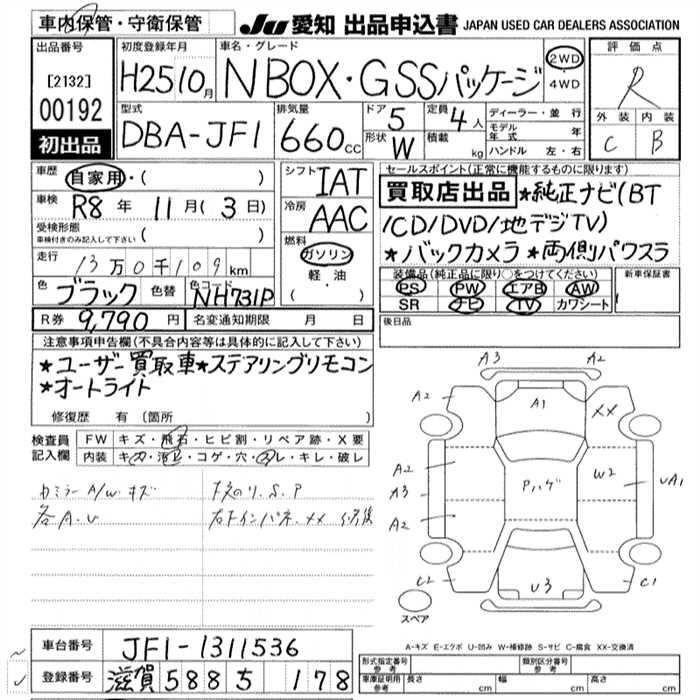 車内保管・守衛保管
JU 愛知 出品申込書 JAPAN USED CAR DEALERS ASSOCIATION
出品番号
[2132]
00192
初出品
初度登録年月
H25 10月
車名・グレード
N BOX・GSSパッケージ
2WD
・4WD
評価点
R
外装 内装
C B
型式
DBA-JF1
排気量
660cc
ドア 5
形状 W
定員 4人
積載 kg
ディーラー・並行
モデル年式 年
ハンドル 左・右
車歴 自家用・( )
車検 R8年 11月(3日)
受検形態
車検付きのみ記入して下さい ( )
走行 13万0千109km
色 ブラック 色替 色コード NH731P
R券 9,790円 名変通知期限 月 日
シフト IAT
冷房 AAC
燃料
ガソリン
軽・油
( ・ )
セールスポイント(正常に機能するものに限ります)
買取店出品 ★純正ナビ(BT
/CD/DVD/地デジTV)
★バックカメラ ★両側パワスラ
装備品(純正品に限り○をつけてください) 新車保証書
PS PW エアB AW
SR ナビ TV カワシート
後日品
注意事項申告欄(不具合内容等は具体的に記入して下さい)
★ユーザー買取車★ステアリングリモコン
★オートライト
修復歴 有 〔箇所 〕
検査員記入欄
FW キズ・飛石・ヒビ割・リペア跡・X要
内装 キズ・汚れ・コゲ・穴・スレ・キレ・破レ
カミラー A/W キズ
各A.U
下廻りS.P
右下インパネ XX 修復
A3 A2
A2 A1 XX
A2 W2 UA1
A3 Pハゲ
A2
C2 U3 C1
スペア
A-キズ E-エクボ U-凹み W-補修跡 S-サビ C-腐食 XX-交換済
車台番号 JF1-1311536
登録番号 滋賀 588 ら 178
型式指定番号 参考
類別区分番号 参考
車庫証明用 参考 長さ cm 幅 cm 高さ cm